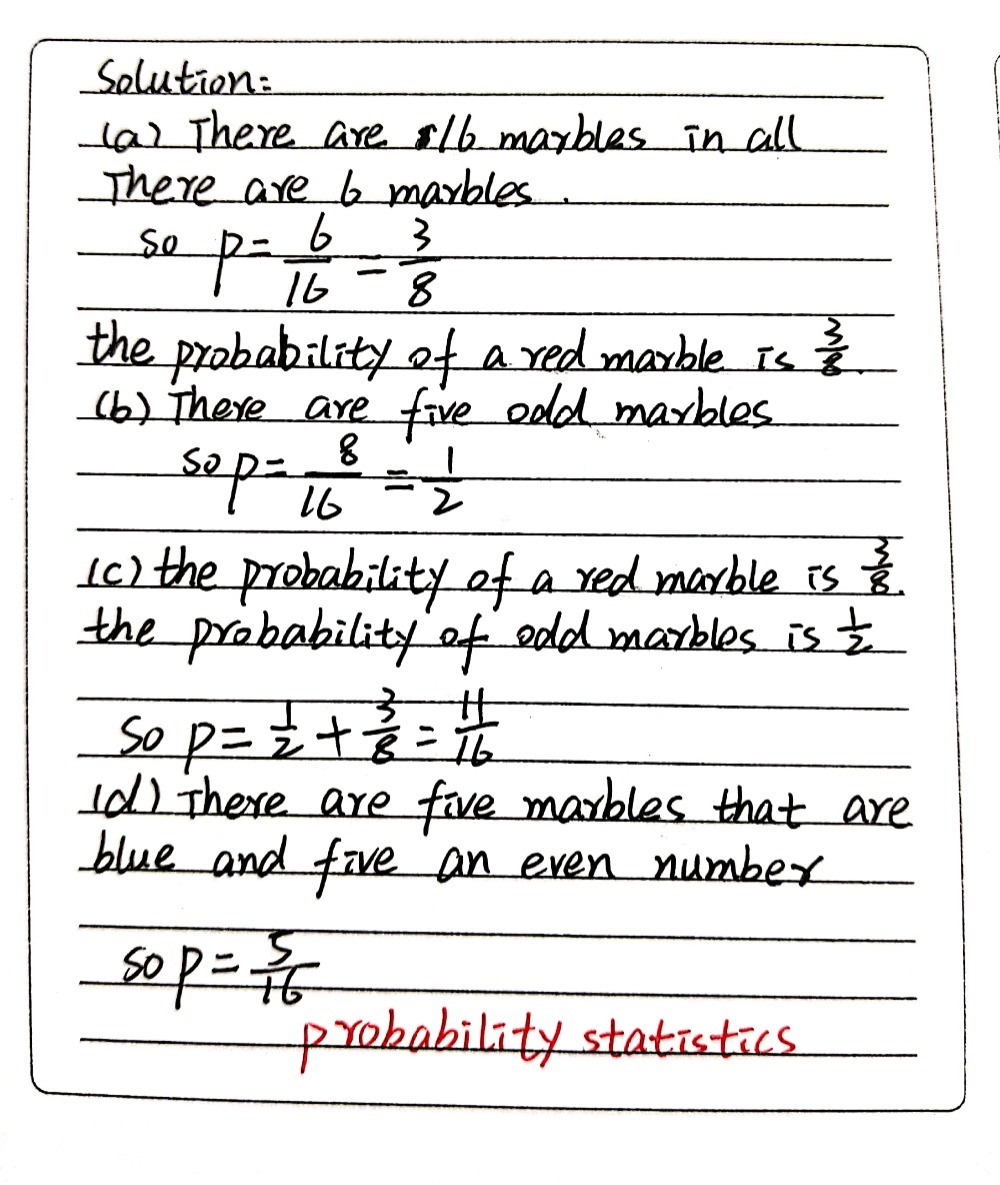 Solution:
(a) There are 16 marbles in all
There are 6 marbles.
so p = 6/16 = 3/8
the probability of a red marble is 3/8.
(b) There are five odd marbles
so p = 8/16 = 1/2
(c) the probability of a red marble is 3/8.
the probability of odd marbles is 1/2
So p = 1/2 + 3/8 = 11/16
(d) There are five marbles that are
blue and five an even number
so p = 5/16
probability statistics